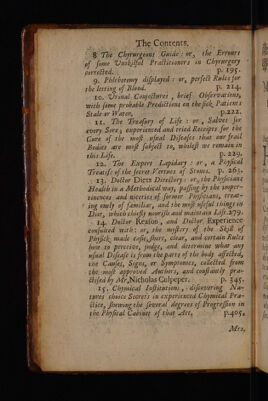 The Contents.
8 The Chyrurgeons Guide: or, the Errours
of some Unskilful Practitioners in Chyrurgery
corrected. p. 195.
9. Phlebotomy displayed: or, perfect Rules for
the letting of Blood. p. 214.
10. Urinal Conjectures, brief Observations,
with some probable Predictions on the sick Patients
Stale or Water. p.222.
11. The Treasury of Life: or, Salves for
every Sore; experienced and tried Receipts for the
Cure of the most usual Diseases that our frail
Bodies are most subject to, whilest we remain in
this Life. p. 229.
12. The Expert Lapidary: or, a Physical
Treatise of the secret Vertues of Stones. p. 263.
13. Doctor Diets Directory: or, the Physicians
Health in a Methodical way, passing by the imper-
tinences and niceties of former Physicians, treat-
ing onely of familiar, and the most usual things in
Diet, which chiefly nourish and maintain Life. 279.
14. Doctor Reason, and Doctor Experience
consulted with: or, the mystery of the Skill of
Physick made easie, short, clear, and certain Rules
how to perceive, judge, and determine what any
usual Disease is from the parts of the body affected,
the Causes, Signs, or Symptomes, collected from
the most approved Authors, and constantly pra-
ctised by Mr. Nicholas Culpeper. p. 345.
15. Chymical Institutions, discovering Na-
tures choice Secrets in experienced Chymical Pra-
ctice, shewing the several degrees of Progression in
the Physical Cabinet of that Art, p.405.
Mrs,